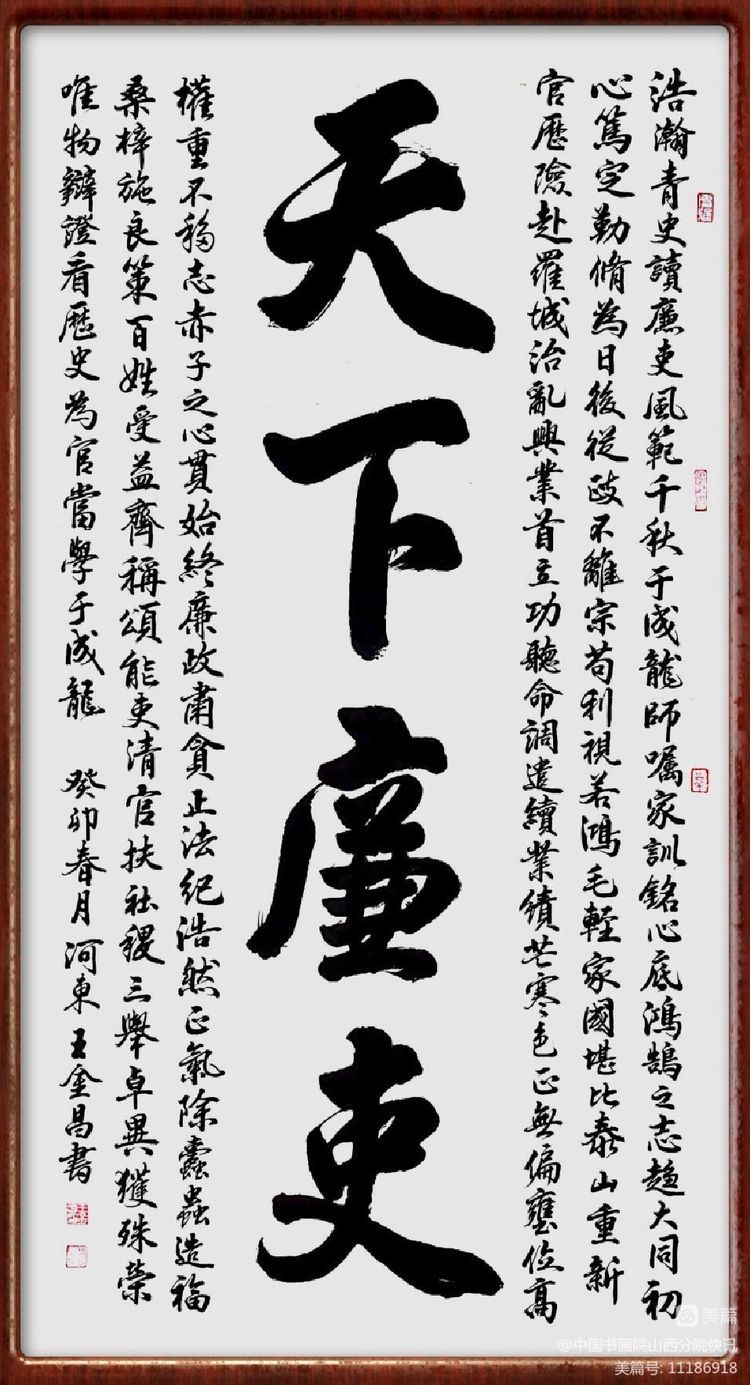 浩瀚青史讀廉吏風範千秋于成龍師囑家訓銘心底鴻鵠之志趨大同初
心篤定勤脩為日後從政不離宗苟利視若鴻毛輕家國堪比泰山重新
官歷險赴羅城治亂興業首立功聽命調遣續業績芒寒色正無偏壅位高
天下廉吏
權重不移志赤子之心貫始終廉政肅貪正法紀浩然正氣除蠹蟲造福
桑梓施良策百姓受益齊稱頌能吏清官扶社稷三舉卓異獲殊榮
唯物辯證看歷史為官當學于成龍 癸卯春月河東王金昌書
美篇
@中国书画院山西分院快讯
美篇号: 11186918